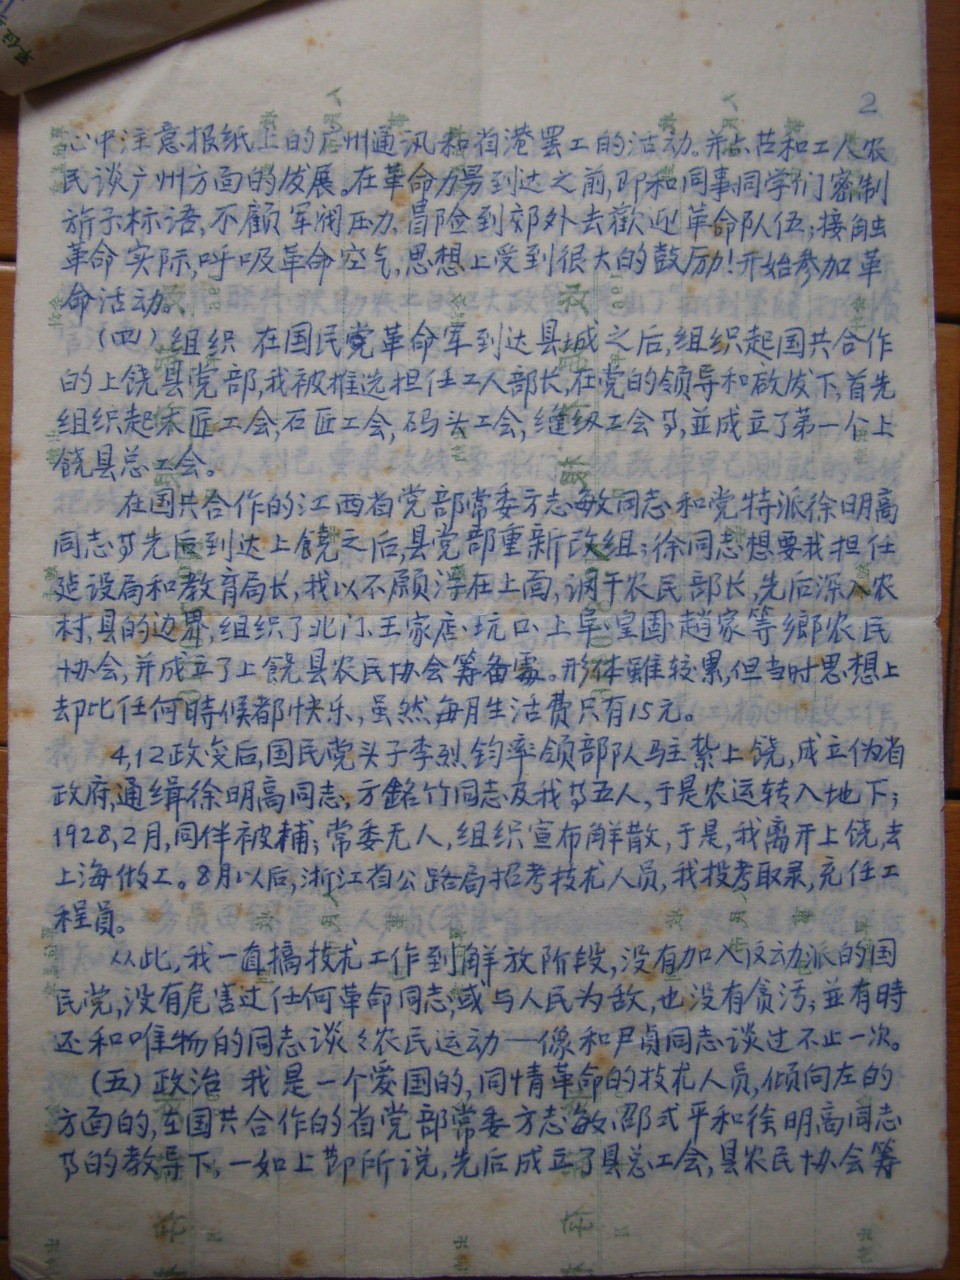 2
心中注意报纸上的广州通讯和省港罢工的活动。并占苦和工人农
民谈广州方面的发展。在革命力量到达之前,即和同事同学们密制
旂示标语,不顾军阀压力,冒险到郊外去歡迎革命队伍;接触
革命实际,呼吸革命空气,思想上受到很大的鼓励!开始参加革
命活动。
(四)组织 在国民党革命军到达县城之后,组织起国共合作
的上饶县党部,我被推选担任工人部长,在党的领导和啟发下,首先
组织起木匠工会,石匠工会,码头工会,缝级工会等,並成立了第一个上
饶县总工会。
在国共合作的江西省党部常委方志敏同志和党特派徐明高
同志等先后到达上饶之后,县党部重新改组;徐同志想要我担任
建设局和教育局长,我以不愿浮在上面,调干农民部长,先后深入农
村,县的边界,组织了北门、王家店、坑口、上阜、皇固、趙家等鄉农民
协会,并成立了上饶县农民协会筹备處。形体雖较累,但当时思想上
却比任何時候都快乐,虽然每月生活费只有15元。
4,12政变后,国民党头子李烈钧率领部队驻紮上饶,成立伪省
政府,通缉徐明高同志,方銘竹同志及我等五人,于是农运转入地下;
1928,2月,同伴被輔;常委无人,组织宣布解散,于是,我离开上饶,去
上海做工。8月以后,浙江省公路局招考技术人员,我投考取录,充任工
程员。
从此,我一直搞技术工作到解放阶段,没有加入反动派的国
民党,没有危害过任何革命同志,或与人民为敌,也没有贪污;並有時
还和唯物的同志谈谈农民运动——像和尹貞同志谈过不止一次。
(五)政治 我是一个爱国的,同情革命的技术人员,倾向左的
方面的,在国共合作的省党部常委方志敏、邵式平和徐明高同志
等的教导下,一如上节所说,先后成立了县总工会,县农民协会筹